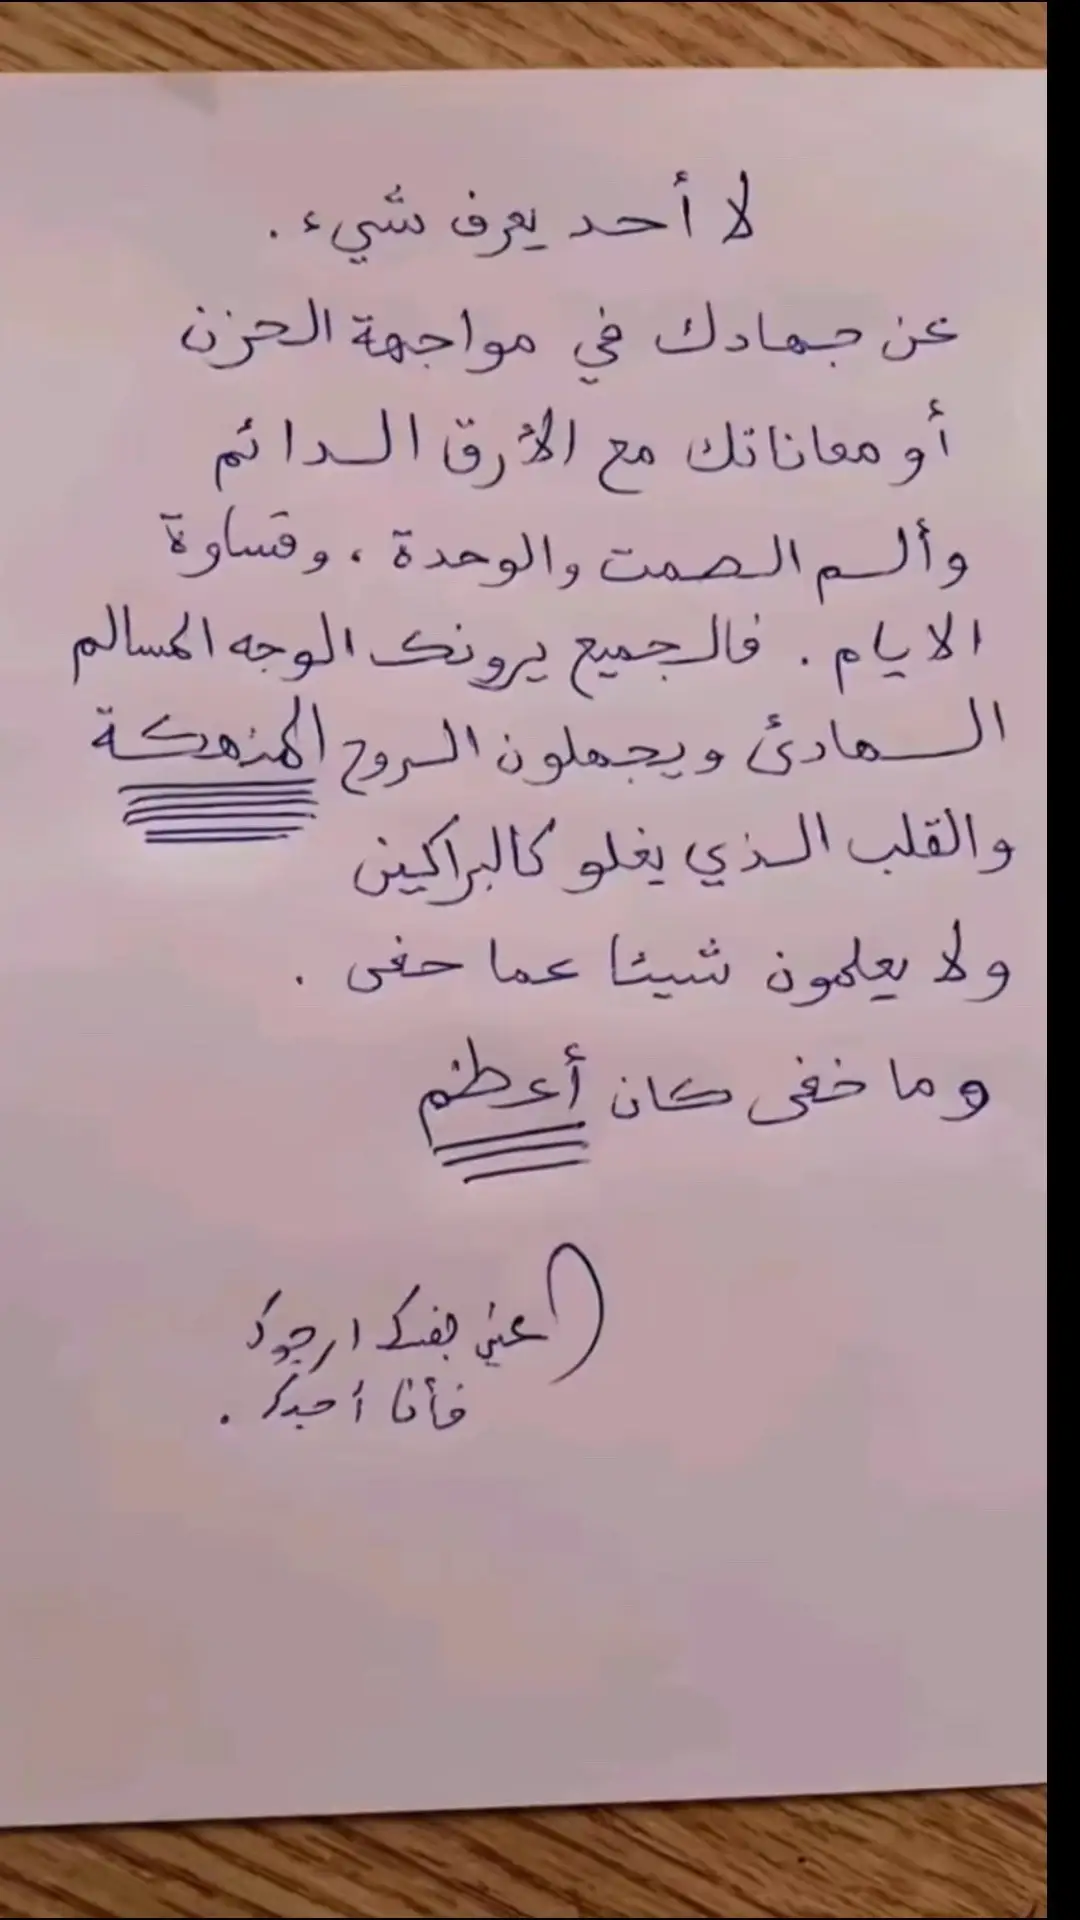 لا أحد يعرف شيء .
عن جهادك في مواجهة الحزن
أو معاناتك مع الأرق الدائم
وألم الصمت والوحدة ، وقساوة
الايام . فالجميع يرونك الوجه المسالم
الهادئ ويجهلون الروح المنهكة
والقلب الذي يغلو كالبراكين
ولا يعلمون شيئا عما حفى .
وما خفى كان أعظم
ارجوك
فأنا أحبك .